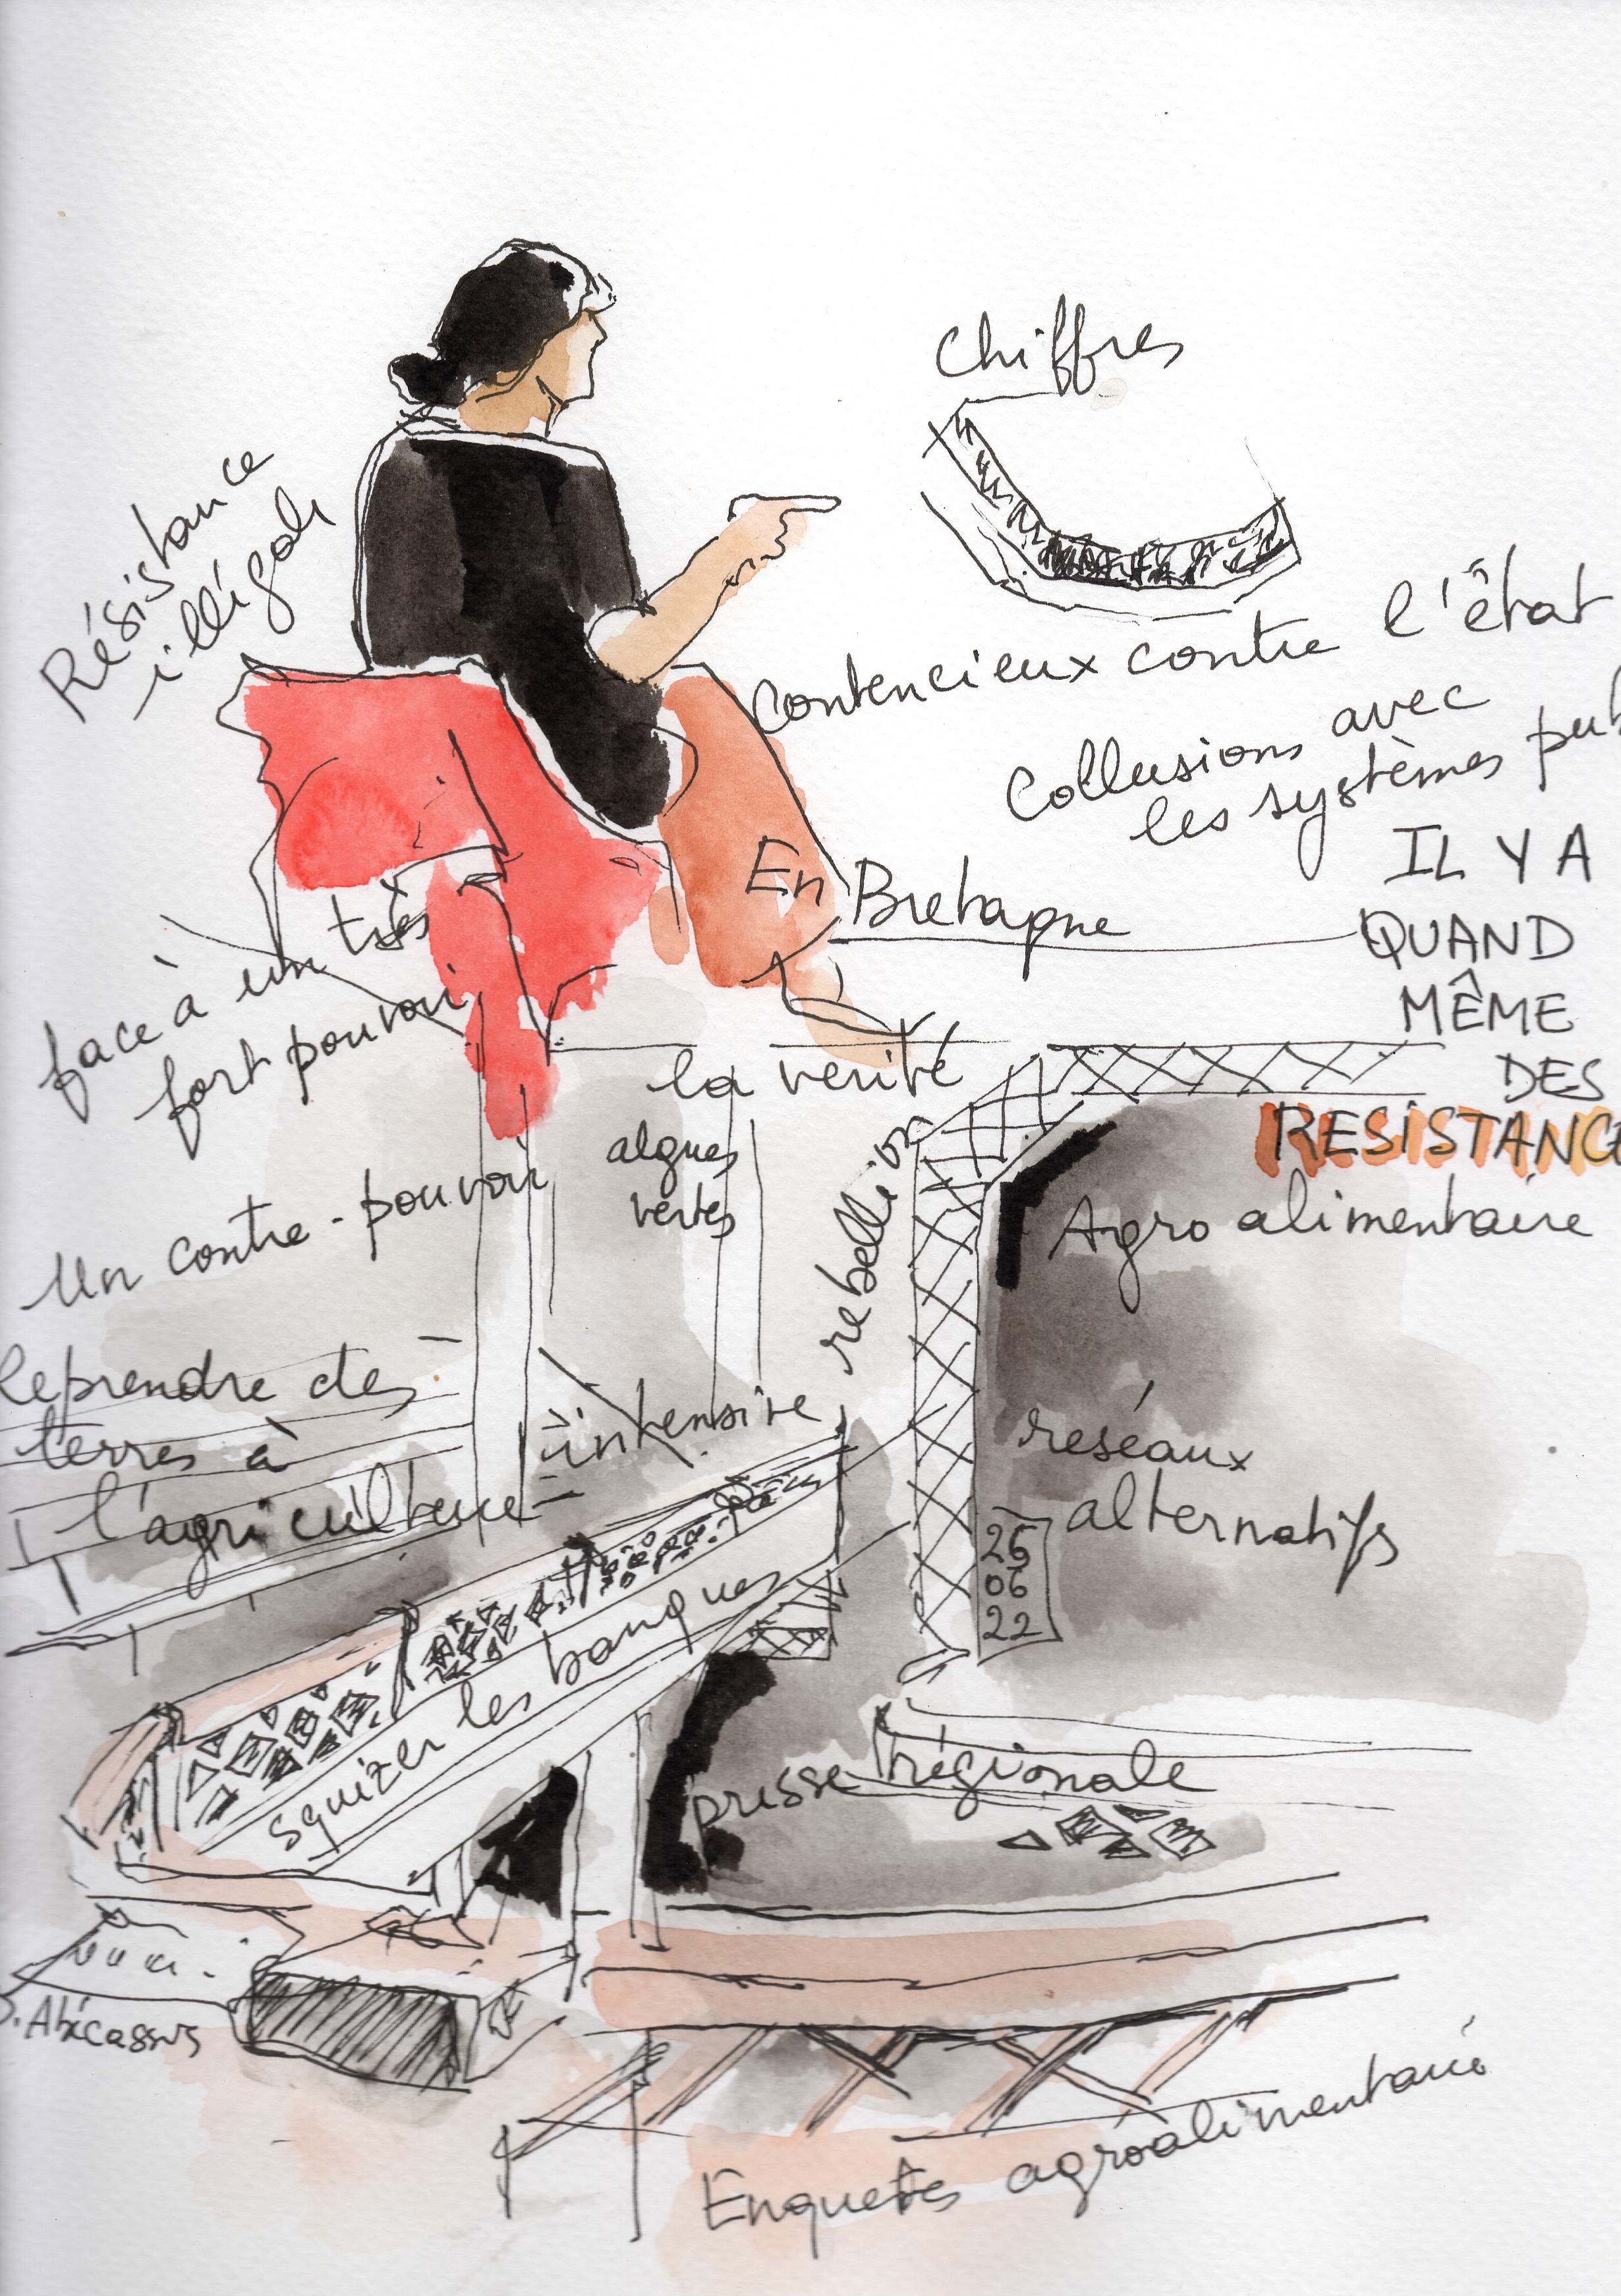 chiffres
Résistance
illégale
contencieux contre l'état
Collusions avec
les systèmes pub
IL Y A
QUAND
MÊME
DES
RESISTANC
En Bretagne
face à un très
fort pouvoir
la verité
algues
vertes
rebellion
Un contre-pouvoir
Agro alimentaire
Reprendre des
terres à
l'agriculture
intensive
réseaux
alternatifs
26
06
22
squizer les banques
presse régionale
Enquetes agroalimentaire